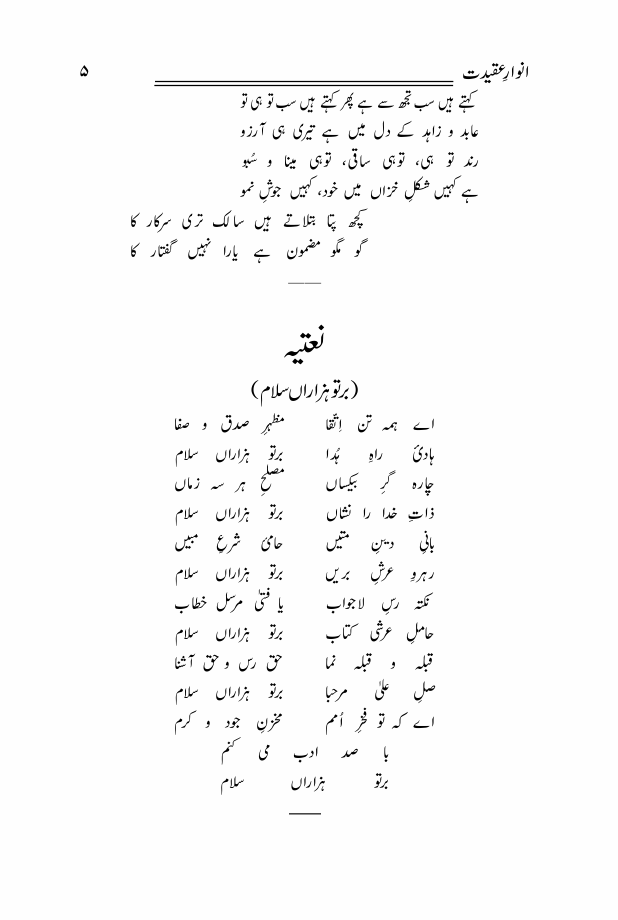 انوارِ عقیدت ۵
کہتے ہیں سب تجھ سے ہے پھر کہتے ہیں سب تو ہی تو
عابد و زاہد کے دل میں ہے تیری ہی آرزو
رند تو ہی، توہی ساقی، توہی مینا و سُبو
ہے کہیں شکلِ خزاں میں خود، کہیں جوشِ نمو
کچھ پتا بتلاتے ہیں سالک تری سرکار کا
گو مگو مضمون ہے یارا نہیں گفتار کا
نعتیہ
(برتو ہزاراں سلام)
اے ہمہ تن اِتّقا مظہرِ صدق و صفا
ہادیٔ راہِ ہُدا برتو ہزاراں سلام
چارہ گرِ بیکساں مصلحِ ہر سہ زماں
ذاتِ خدا را نشاں برتو ہزاراں سلام
بانیِ دینِ متیں حامیٔ شرعِ مبیں
رہروِ عرشِ بریں برتو ہزاراں سلام
نکتہ رسِ لاجواب یا فتیٰ مرسل خطاب
حاملِ عرشی کتاب برتو ہزاراں سلام
قبلہ و قبلہ نما حق رس و حق آشنا
صلِ علیٰ مرحبا برتو ہزاراں سلام
اے کہ تو فخرِ اُمم مخزنِ جود و کرم
با صد ادب می کنم
برتو ہزاراں سلام